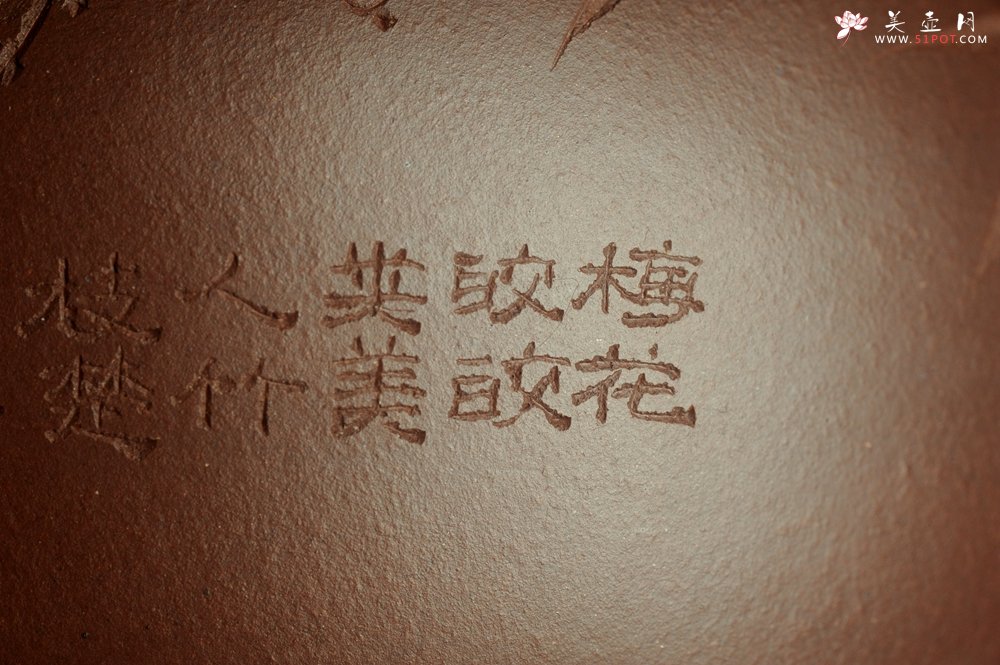 梅花
皎皎
英美
人竹
枝楚
美壶网
WWW.51POT.COM